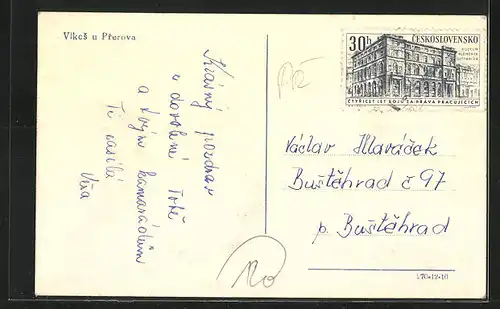 Vlkoš u Přerova
Krásný pozdrav
z dovolené Tobě
a tvým kamarádům
Ti zasílá
Víťa
30h ČESKOSLOVENSKO
MUZEUM
KLEMENTA
GOTTWALDA
ČTYŘICET LET BOJŮ ZA PRÁVA PRACUJÍCÍCH
Václav Hlaváček
Buštěhrad č 97
p. Buštěhrad